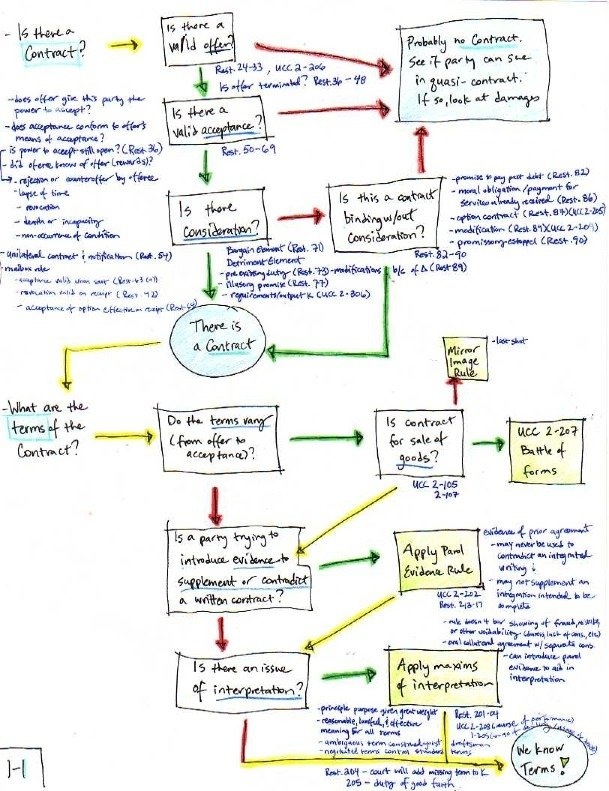 - Is there a
Contract?
Is there a
valid offer?
Rest. 24-33, UCC 2-206
Is offer terminated? Rest. 36-48
Probably no Contract.
See if party can sue
in quasi-contract.
If so, look at damages
- does offer give this party the
power to accept?
- does acceptance conform to offer's
means of acceptance?
is power to accept still open? (Rest. 36)
- did offeree know of offer (rewards)?
- rejection or counteroffer by offeree
- lapse of time
- revocation
- death or incapacity
- non-occurrence of condition
- unilateral contract & notification (Rest. 54)
- mailbox rule
- acceptance valid when sent (Rest.
- revocation valid on receipt (Rest. 42)
- acceptance of option effective on receipt (Rest.
Is there a
valid acceptance?
Rest. 50-69
Is there
Consideration?
Bargain Element (Rest. 71)
Detriment Element
- pre existing duty (Rest. 73) - modifications
- illusory promise (Rest. 77)
- requirements/output K (UCC 2-306)
b/c of Δ (Rest 89)
Is this a contract
binding w/out
Consideration?
Rest. 82-90
- promise to pay past debt (Rest. 82)
- moral obligation/payment for
services already received (Rest. 86)
- option contract (Rest. 87)(UCC 2-205)
- modification (Rest. 89)(UCC 2-209)
- promissory estoppel (Rest. 90)
There is
a Contract
Mirror
Image
Rule
- last shot
- What are the
terms of the
Contract?
Do the terms vary
(from offer to
acceptance)?
Is contract
for sale of
goods?
UCC 2-105
2-107
UCC 2-207
Battle of
forms
Is a party trying to
introduce evidence to
supplement or contradict
a written contract?
Apply Parol
Evidence Rule
UCC 2-202
Rest. 213-17
evidence of prior agreement
- may never be used to
contradict an integrated
writing &
- may not supplement an
integration intended to be
complete
- rule doesn't bar showing of fraud, mistake,
or other voidability (duress, lack of cons., etc)
- oral collateral agreement w/ separate cons.
- can introduce parol
evidence to aid in
interpretation
Is there an issue
of interpretation?
Apply maxims
of interpretation
- principle purpose given great weight
- reasonable, lawful, & effective
meaning for all terms
- ambiguous term construed against draftsman
- negotiated terms control standard terms
Rest. 201-04
UCC 2-208 (course of performance)
1-205
Rest. 204 - court will add missing term to K
205 - duty of good faith
We know
Terms!
1-1